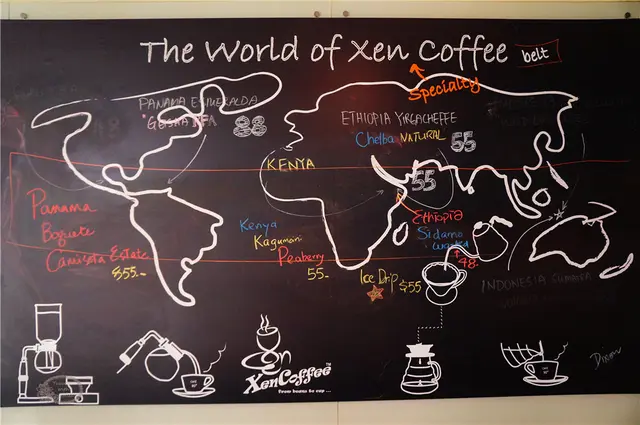 The World of Xen Coffee belt
Specialty
PANAMA ESMERALDA
88
ETHIOPIA YIRGACHEFFE
Chelba NATURAL 55
KENYA
55
Panama
Boquete
Camiseta Estate
$55.-
Kenya
Kagumoini
Peaberry
55-
Ethiopia
Sidamo
48.
Ice Drip $55
INDONESIA SUMATRA
XenCoffee™
From beans to cup ...